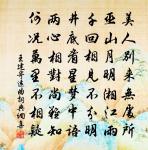 美人别来無處所
巫山月明湘江雨
千回相見不分明
井底看星夢中語
兩心相對尚難知
何況萬里不相疑